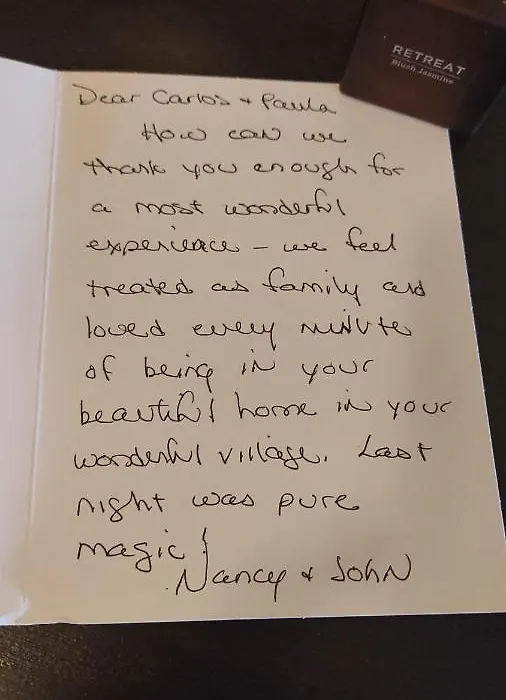 RETREAT
Blush Jasmine
Dear Carlos + Paula
How can we
thank you enough for
a most wonderful
experience - we feel
treated as family and
loved every minute
of being in your
beautiful home in your
wonderful village. Last
night was pure
magic!
Nancy + John